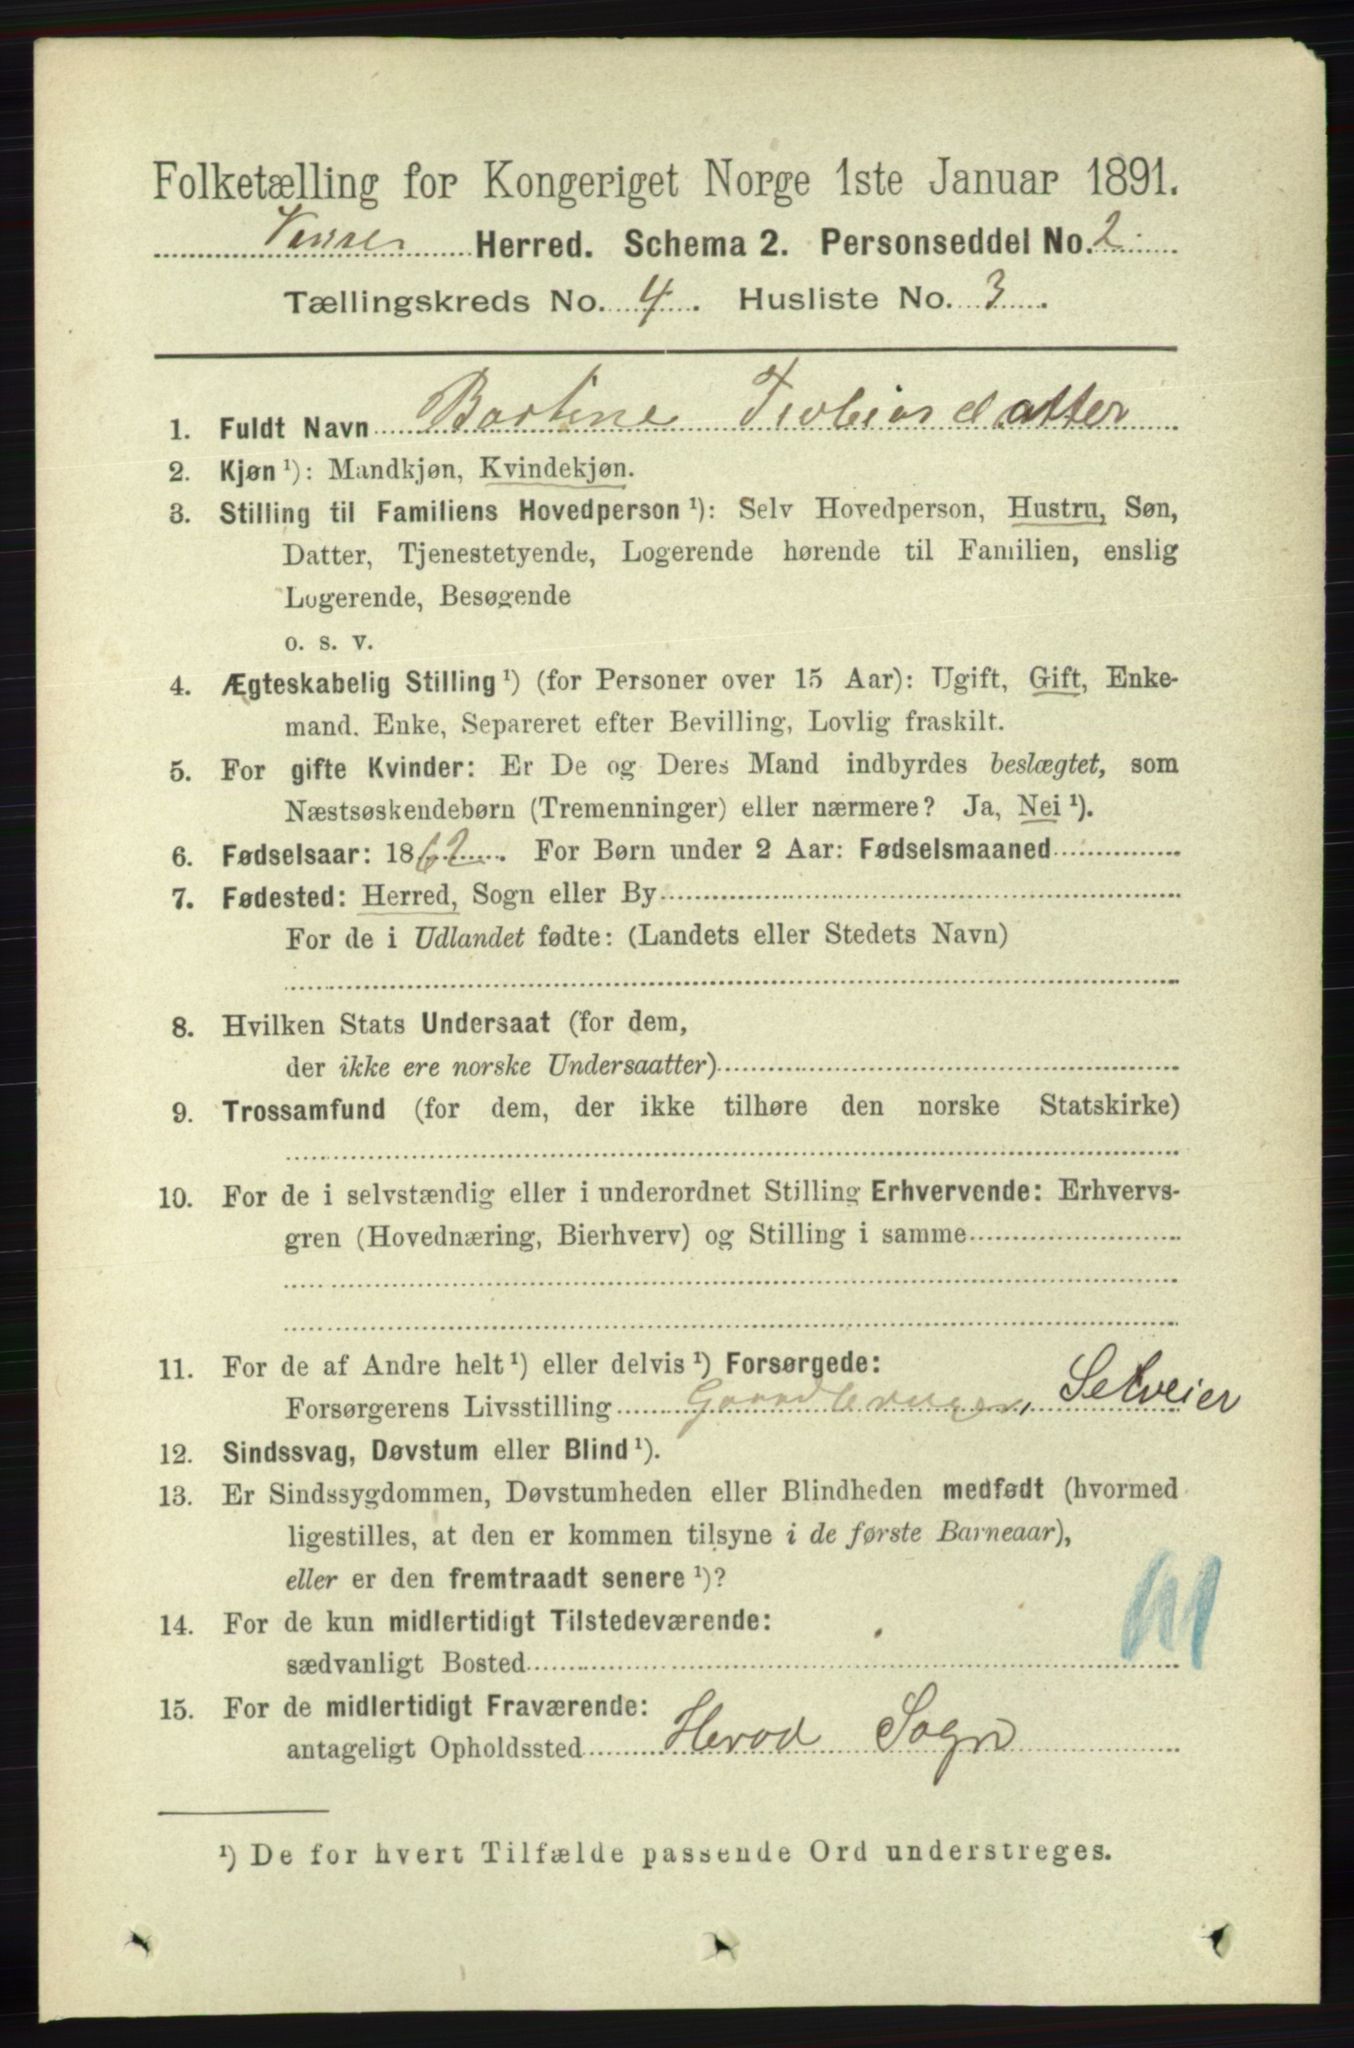 Folketælling for Kongeriget Norge 1ste Januar 1891.
Herred. Schema 2. Personseddel No. 2
Tællingskreds No. 4. Husliste No. 3.
1. Fuldt Navn
2. Kjøn ¹): Mandkjøn, Kvindekjøn.
3. Stilling til Familiens Hovedperson ¹): Selv Hovedperson, Hustru, Søn,
Datter, Tjenestetyende, Logerende hørende til Familien, enslig
Logerende, Besøgende
o. s. v.
4. Ægteskabelig Stilling ¹) (for Personer over 15 Aar): Ugift, Gift, Enke-
mand, Enke, Separeret efter Bevilling, Lovlig fraskilt.
5. For gifte Kvinder: Er De og Deres Mand indbyrdes beslægtet, som
Næstsøskendebørn (Tremenninger) eller nærmere? Ja, Nei ¹).
6. Fødselsaar: 1862. For Børn under 2 Aar: Fødselsmaaned
7. Fødested: Herred, Sogn eller By
For de i Udlandet fødte: (Landets eller Stedets Navn)
8. Hvilken Stats Undersaat (for dem,
der ikke ere norske Undersaatter)
9. Trossamfund (for dem, der ikke tilhøre den norske Statskirke)
10. For de i selvstændig eller i underordnet Stilling Erhvervende: Erhvervs-
gren (Hovednæring, Bierhverv) og Stilling i samme
11. For de af Andre helt ¹) eller delvis ¹) Forsørgede:
Forsørgerens Livsstilling Gaardbruger, Selveier
12. Sindssvag, Døvstum eller Blind ¹).
13. Er Sindssygdommen, Døvstumheden eller Blindheden medfødt (hvormed
ligestilles, at den er kommen tilsyne i de første Barneaar),
eller er den fremtraadt senere ¹)?
14. For de kun midlertidigt Tilstedeværende:
sædvanligt Bosted
15. For de midlertidigt Fraværende:
antageligt Opholdssted Herad Sogn
¹) De for hvert Tilfælde passende Ord understreges.